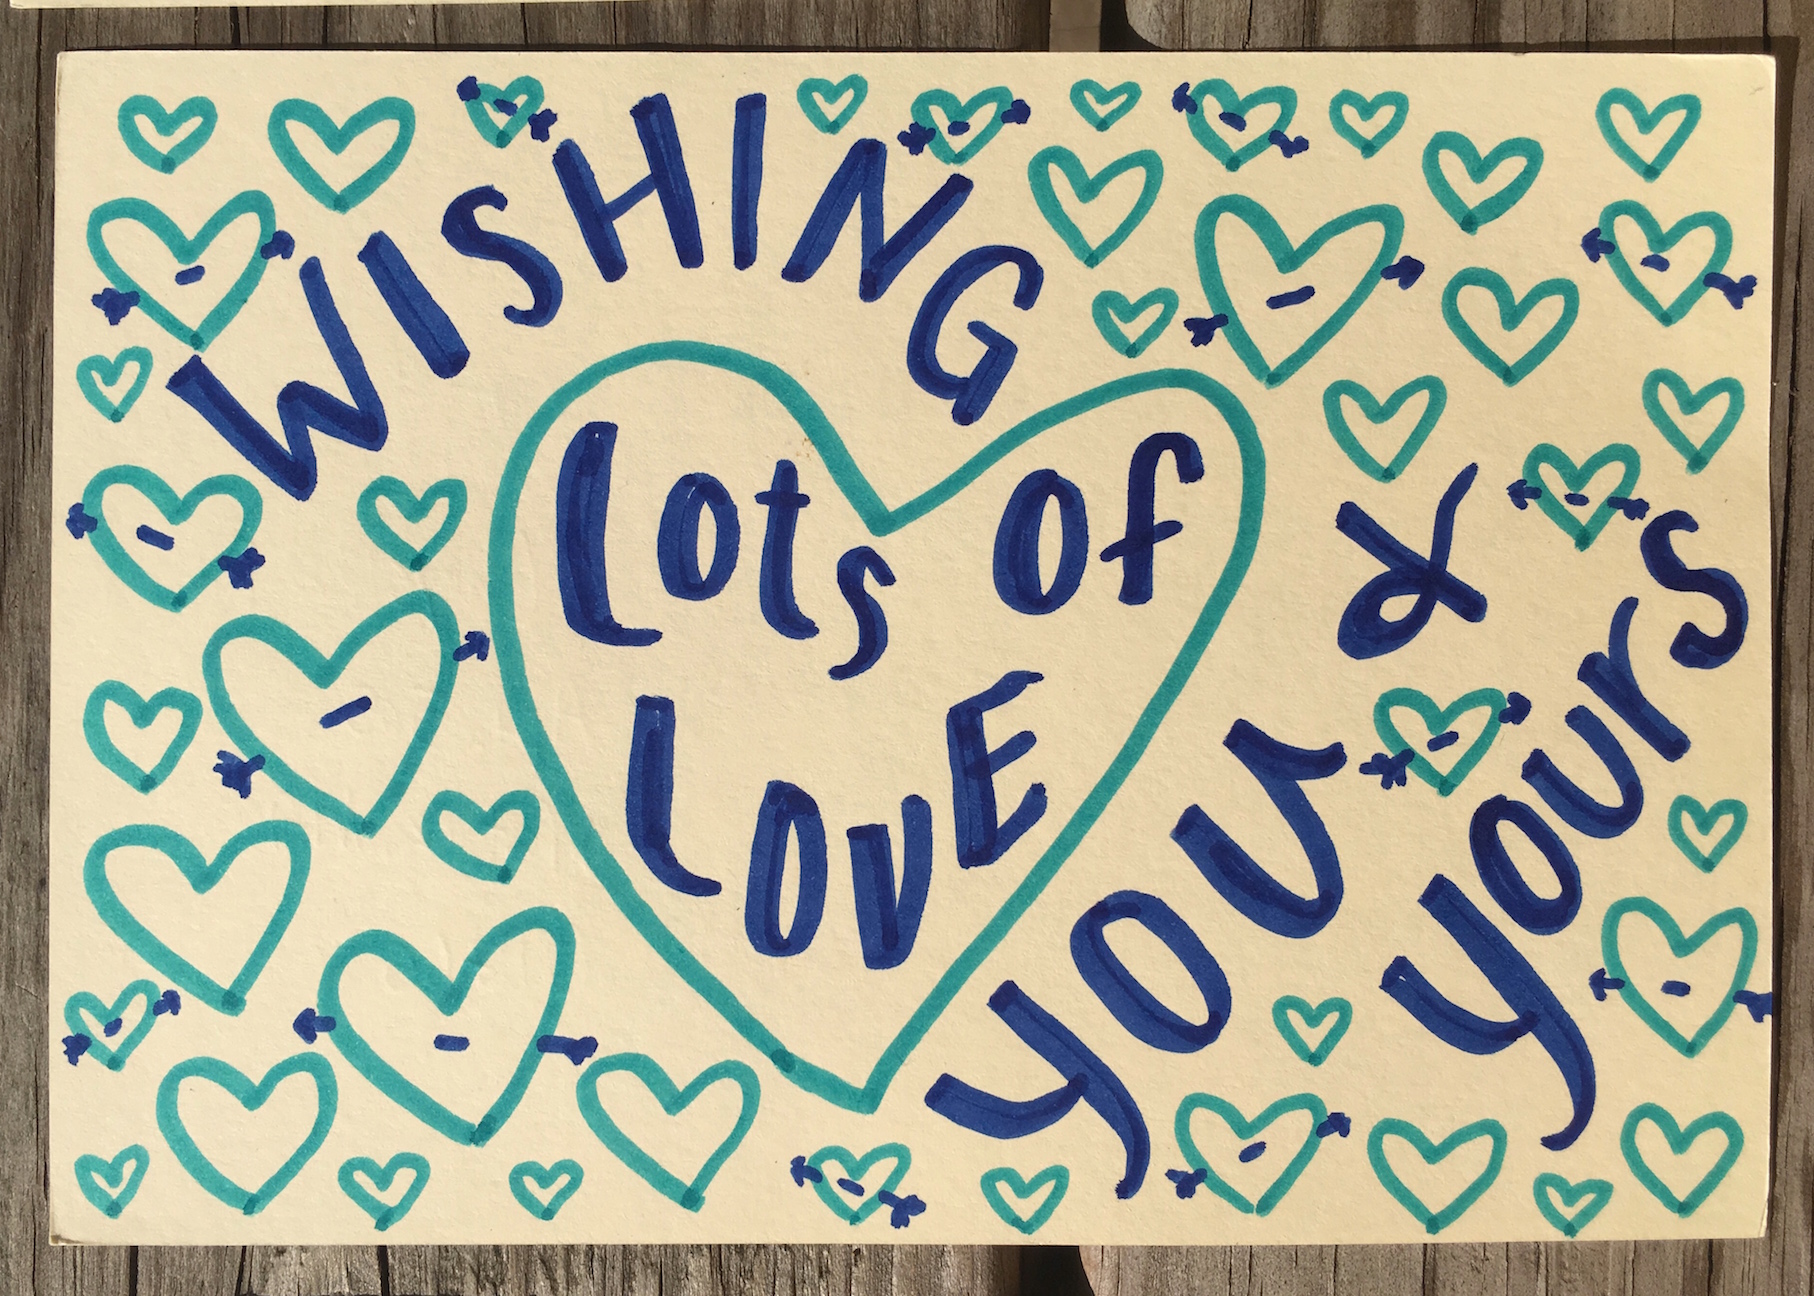 WISHING
Lots of
LOVE
you &
yours